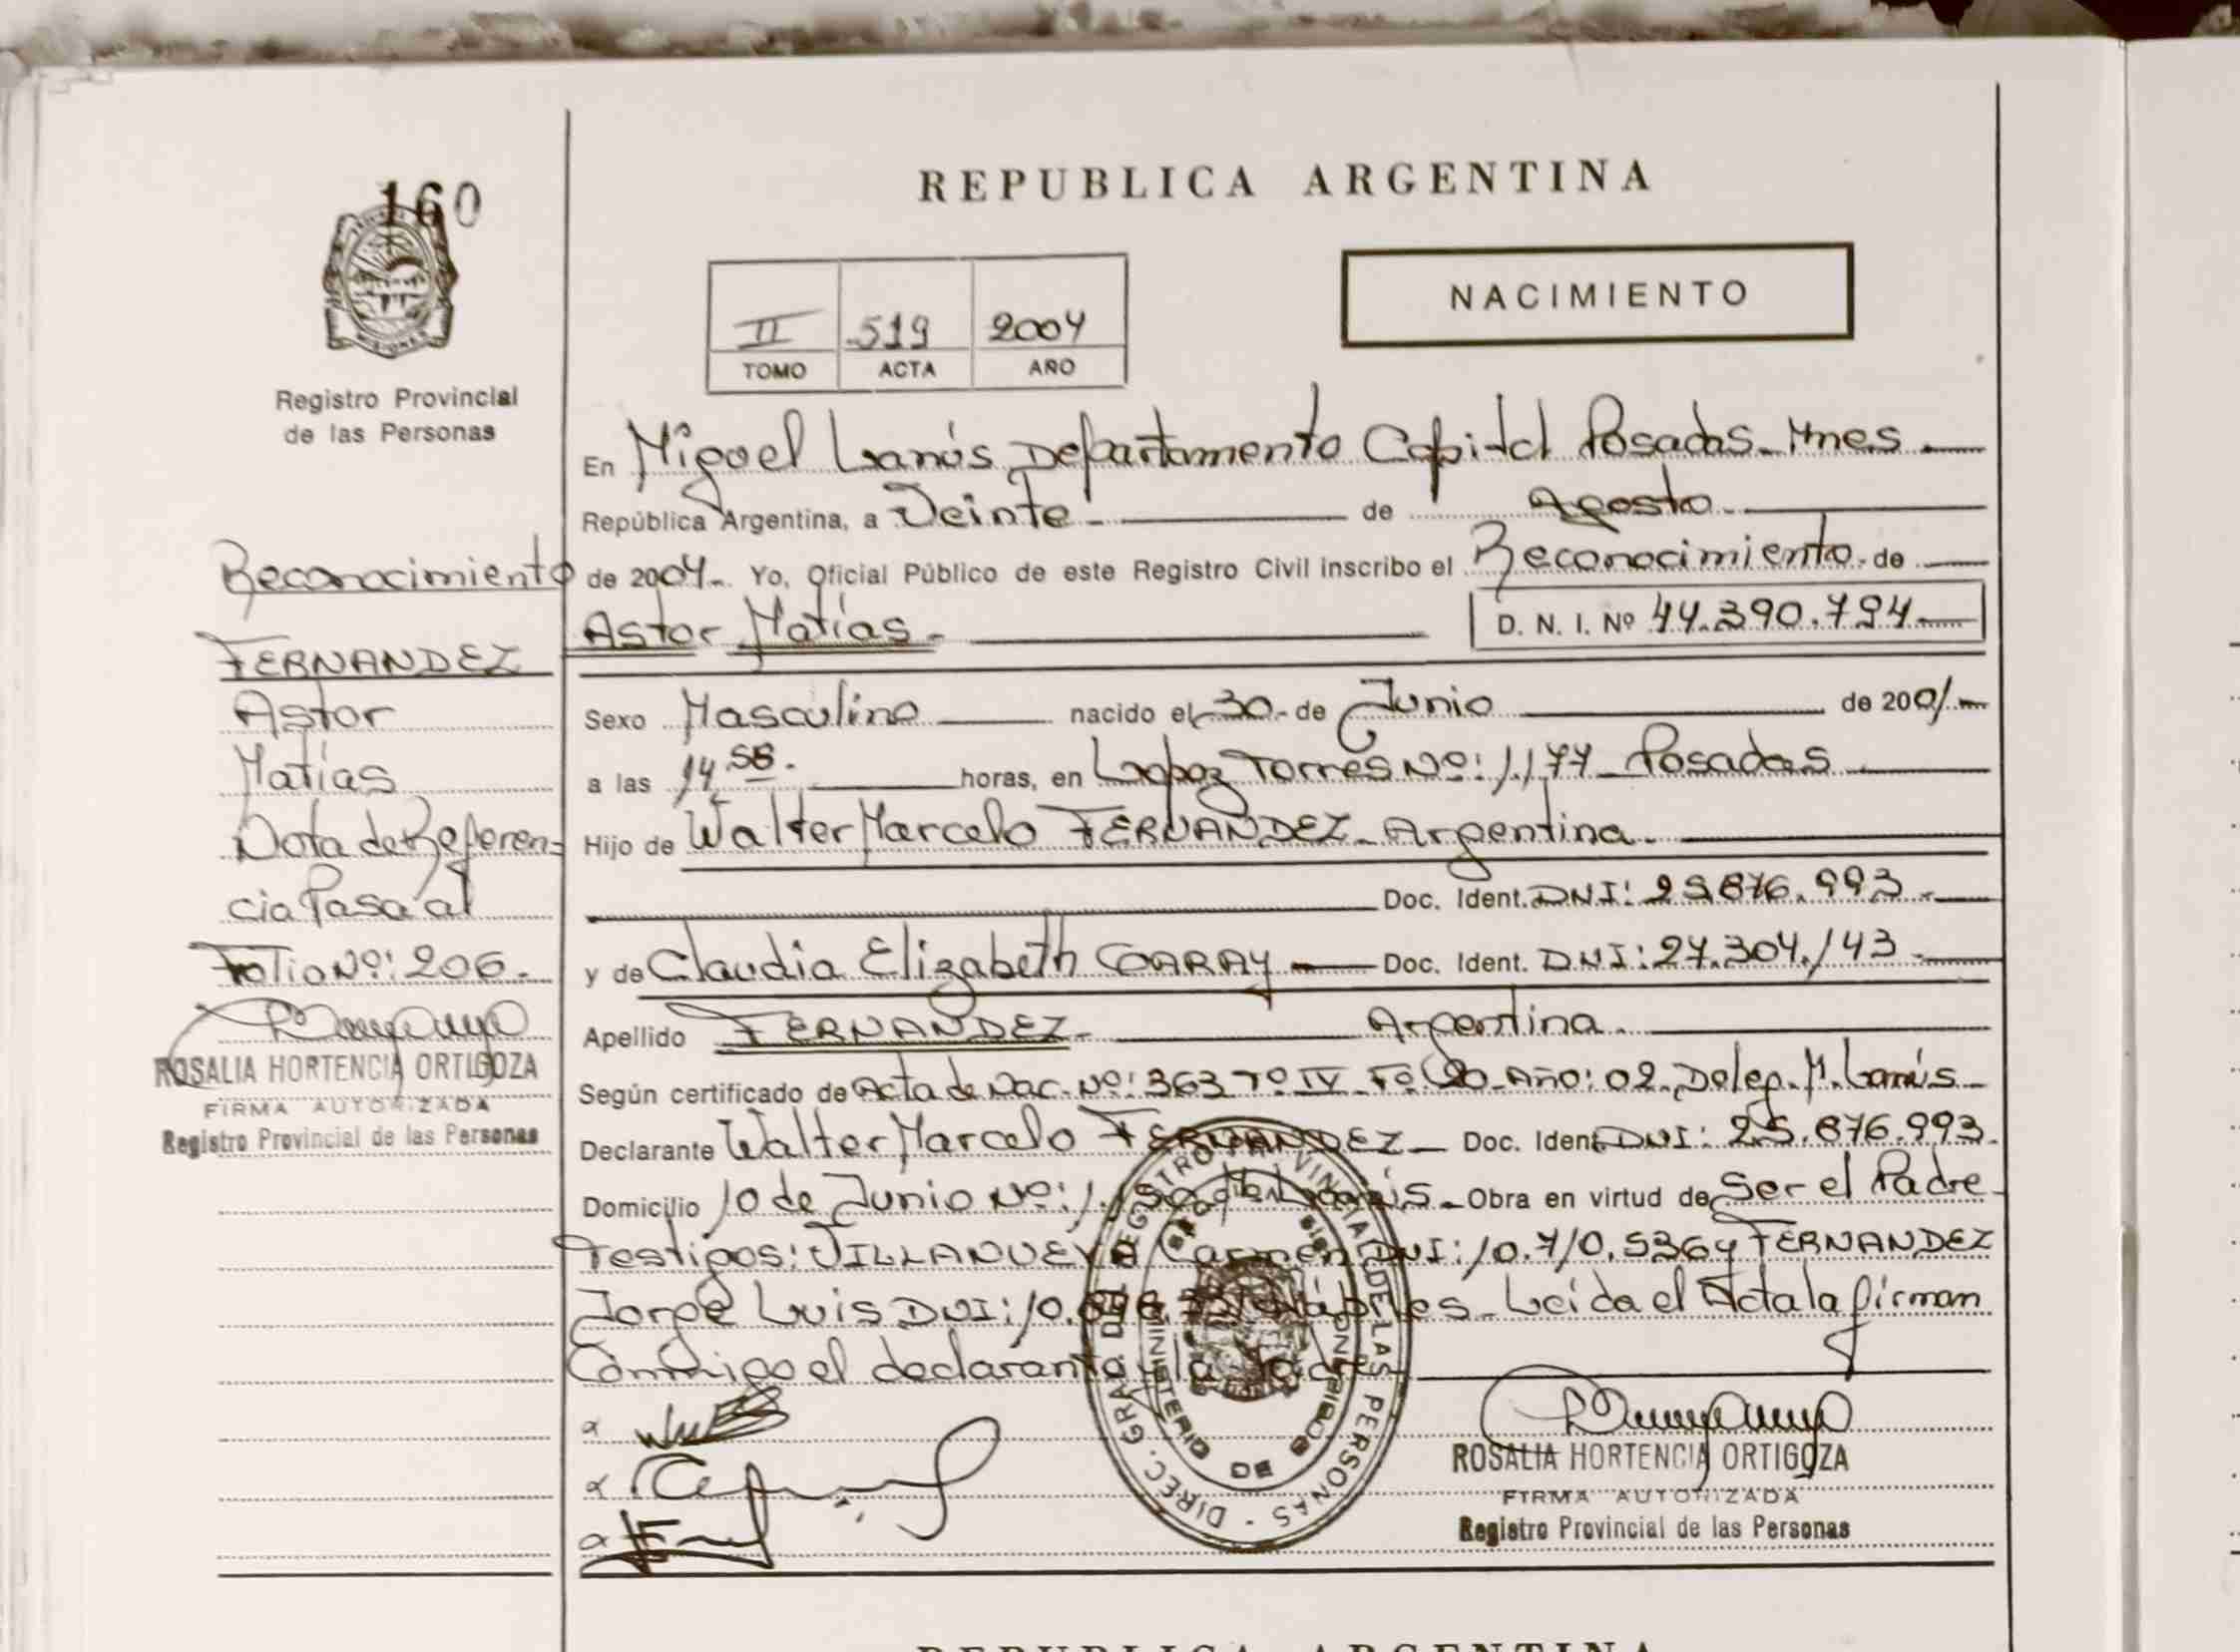 160
REPUBLICA ARGENTINA
NACIMIENTO
II 519 2004
TOMO ACTA AÑO
MISIONES
Registro Provincial
de las Personas
Reconocimiento
FERNANDEZ
Astor
Matías
Nota de Referen=
cia Pasa al
Folio Nº: 206.
ROSALIA HORTENCIA ORTIGOZA
FIRMA AUTORIZADA
Registro Provincial de las Personas
En Miguel Lanús Departamento Capital Posadas - Mnes.
República Argentina, a Veinte - de Agosto
de 2004.- Yo, Oficial Público de este Registro Civil inscribo el Reconocimiento de
Astor Matías - D. N. I. Nº 44.390.794
Sexo Masculino nacido el 30 - de Junio de 200/.
a las 14,58. horas, en Lopez Torres Nº: 1.177 - Posadas
Hijo de Walter Marcelo FERNANDEZ - Argentina.
Doc. Ident. DNI: 25.876.993.-
y de Claudia Elizabeth GARAY Doc. Ident. DNI: 27.304.143
Apellido FERNANDEZ - Argentina.
Según certificado de Acta de Nac. Nº: 363 Tº IV Fº 20 Año: 02 Deleg. M. Lanús
Declarante Walter Marcelo FERNANDEZ - Doc. Ident. DNI: 25.876.993
Domicilio 10 de Junio Nº: Lanús - Obra en virtud de Ser el Padre
Testigos: VILLANUEVA Carmen DNI: 10.710.536 y FERNANDEZ
Jorge Luis DNI: Leida el Acta la firman
Conmigo el declarante y la
DIREC. GRAL. DEL REGISTRO PROVINCIAL DE LAS PERSONAS
MINISTERIO DE GOBIERNO
ROSALIA HORTENCIA ORTIGOZA
FIRMA AUTORIZADA
Registro Provincial de las Personas
REPUBLICA ARGENTINA